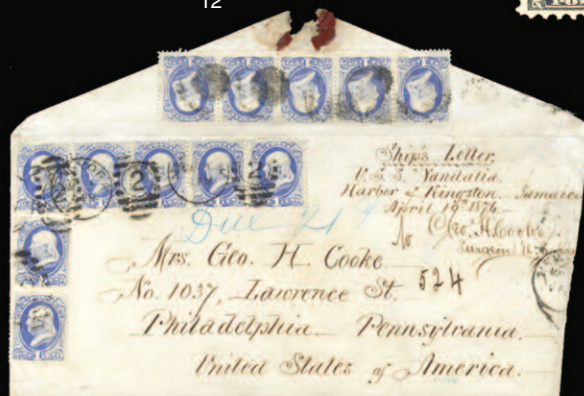 12
Ship's Letter.
U.S.S. Vandalia.
Harbor of Kingston. Jamaica
April 19th 1876.
No Geo. H. Cooke
Surgeon U.S.
Due 21
Mrs. Geo. H. Cooke
No. 1037, Lawrence St. 524
Philadelphia Pennsylvania.
United States of America.